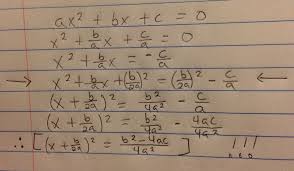 ax² + bx + c = 0
x² + b/a x + c/a = 0
x² + b/a x = -c/a
→ x² + b/a x + (b/2a)² = (b/2a)² - c/a ←
(x + b/2a)² = b²/4a² - c/a
(x + b/2a)² = b²/4a² - 4ac/4a²
∴ [(x + b/2a)² = b² - 4ac/4a²] !!!